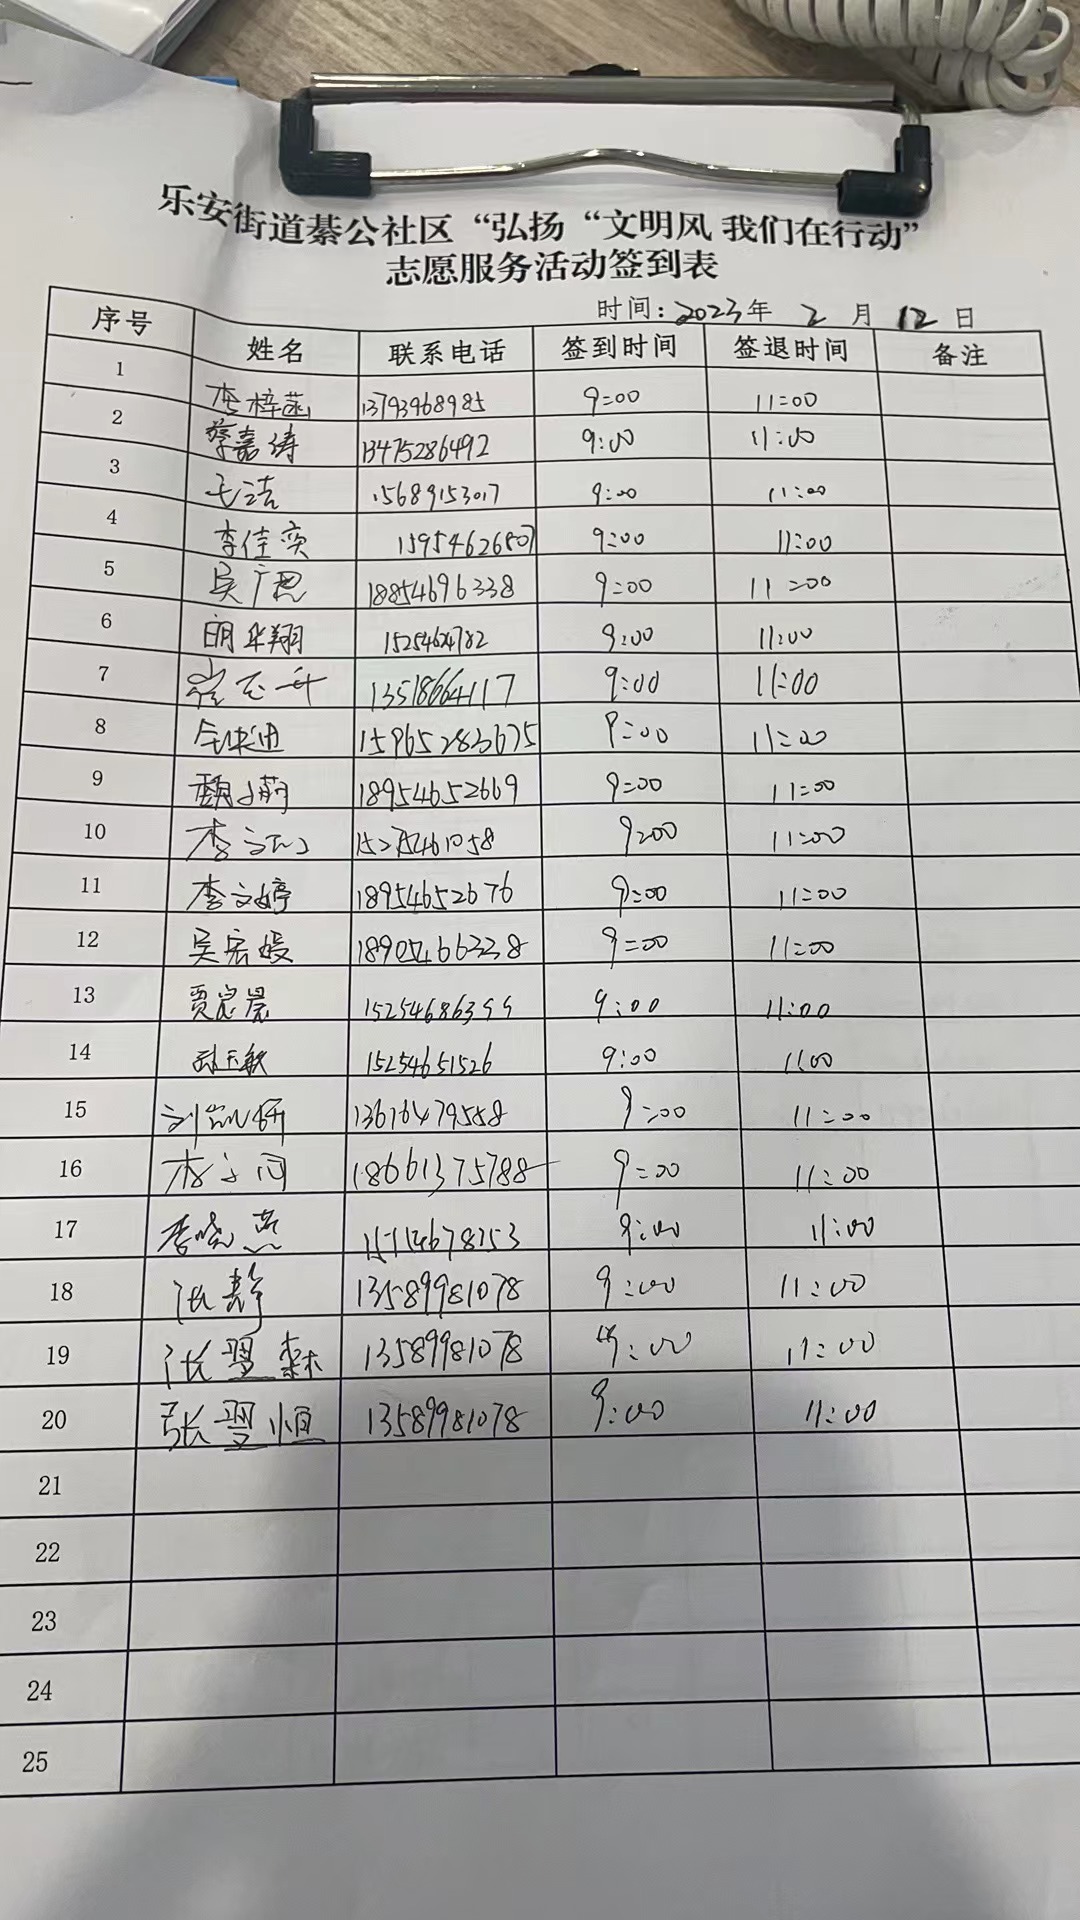 乐安街道綦公社区“弘扬“文明风 我们在行动”
志愿服务活动签到表
时间:2023年 2 月 12 日
序号 姓名 联系电话 签到时间 签退时间 备注
1 李梓菡 13793968985 9:00 11:00
2 蔡嘉涛 13475286492 9:00 11:00
3 王洁 15689153017 9:00 11:00
4 李佳奕 15954626807 9:00 11:00
5 吴广恩 18854696338 9:00 11:00
6 明华翔 9:00 11:00
7 13518664117 9:00 11:00
8 15965283675 9:00 11:00
9 18954652669 9:00 11:00
10 李 15275461058 9:00 11:00
11 李文婷 18954652676 9:00 11:00
12 吴宏媛 18905466338 9:00 11:00
13 贾 9:00 11:00
14 孙玉敏 15254651526 9:00 11:00
15 刘 妍 13616479588 9:00 11:00
16 18661375788 9:00 11:00
17 李晓燕 9:00 11:00
18 张静 13589981078 9:00 11:00
19 张翌森 13589981078 9:00 11:00
20 张翌恒 13589981078 9:00 11:00
21
22
23
24
25